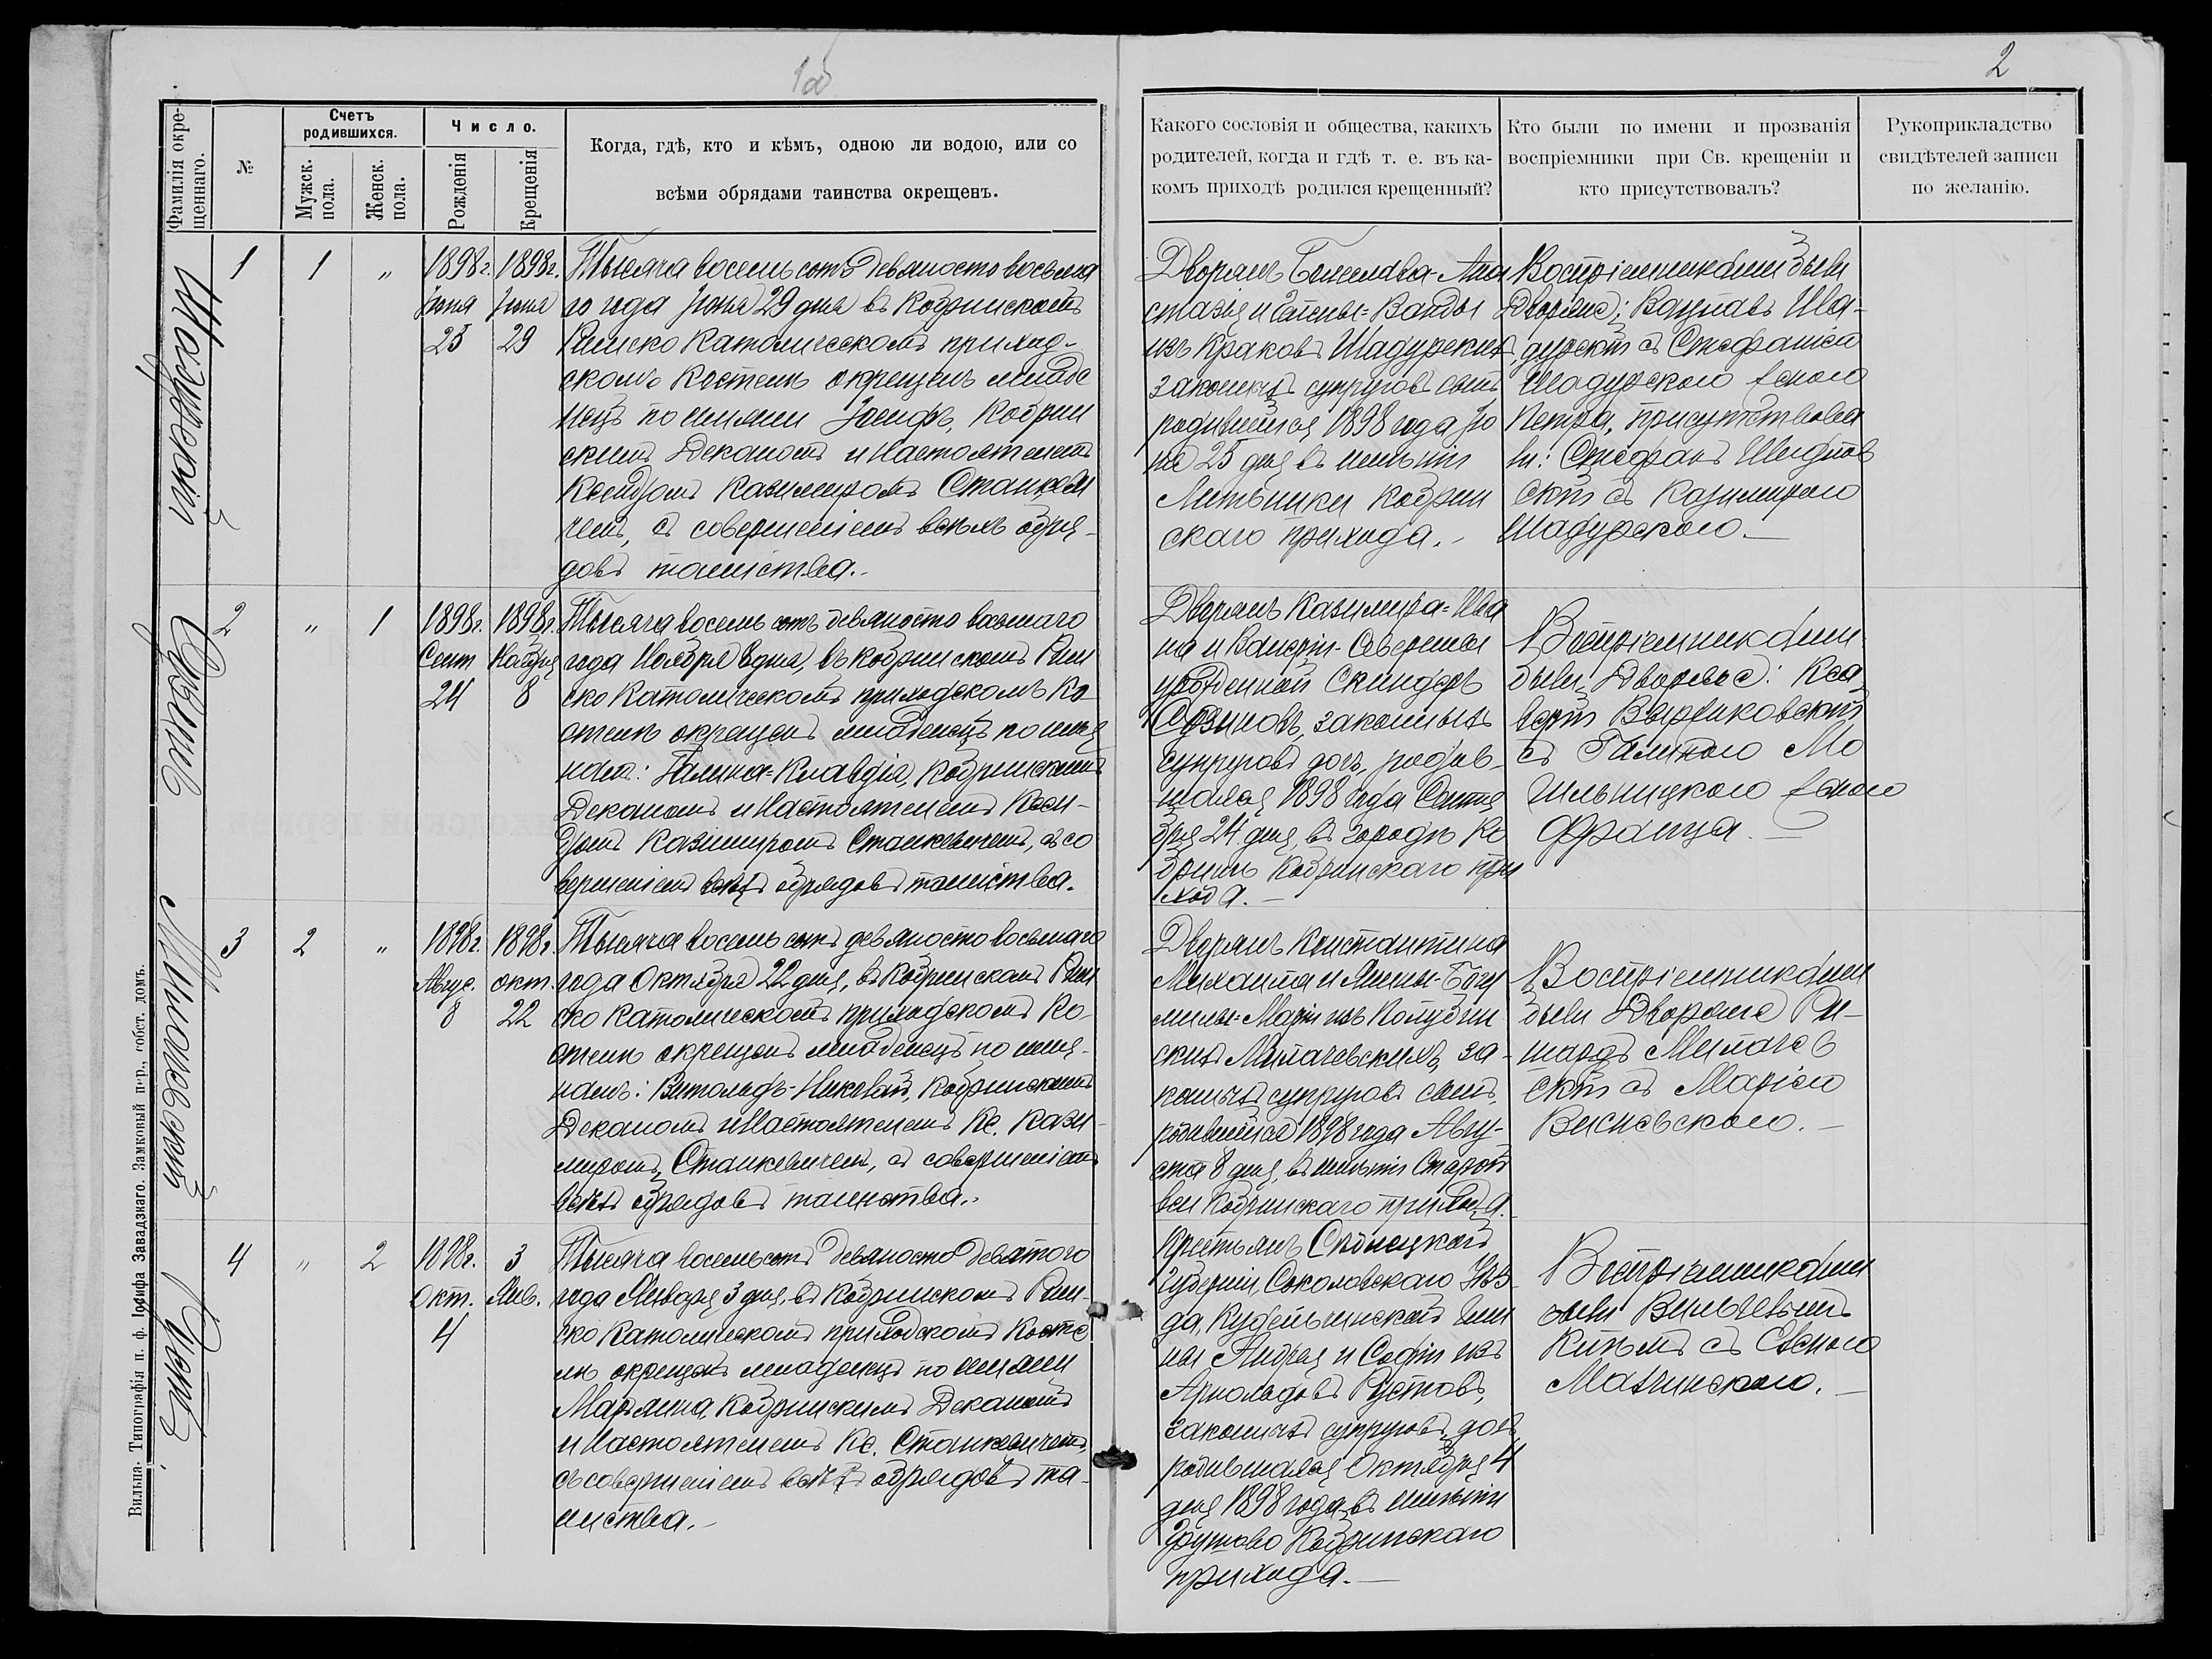 1об
2
Фамилія окре-
щеннаго.
№
Счетъ
родившихся.
Мужск.
пола.
Женск.
пола.
Число.
Рожденія
Крещенія
Когда, гдѣ, кто и кѣмъ, одною ли водою, или со
всѣми обрядами таинства окрещенъ.
Какого сословія и общества, какихъ
родителей, когда и гдѣ т. е. въ ка-
комъ приходѣ родился крещенный?
Кто были по имени и прозванія
воспріемники при Св. крещеніи и
кто присутствовалъ?
Рукоприкладство
свидѣтелей записи
по желанію.
Шадурскій
1
1
"
1898г.
Іюня
25
1898г.
Іюня
29
Тысяча восемьсотъ девяносто восьма
го года Іюня 29 дня въ Кобринскомъ
Римско Католическомъ приход-
скомъ Костелѣ окрещенъ младе
нецъ по имени Іосифъ, Кобрин
скимъ Деканомъ и Настоятелемъ
Ксендзомъ Казимиромъ Станкеви
чемъ, съ совершеніемъ всѣхъ обря-
довъ таинства.
Дворянъ Ана
стазія и Елены-Ванды
изъ Шадурскихъ,
законныхъ супруговъ сынъ
родившійся 1898 года Ію
ня 25 дня въ имѣніи
Литвинки Кобрин
скаго прихода.
Воспріемниками были
Дворяне: Вацлавъ Ша-
дурскій съ Стефаніею
Шадурскою женою
Петра, присутствова
ли: Стефанъ
скій съ Казимирою
Шадурскою.
2
"
1
1898г.
Сент
24
1898г.
Ноября
8
Тысяча восемь сотъ девяносто восьмаго
года Ноября 8 дня, въ Кобринскомъ Рим
ско Католическомъ приходскомъ Ко
стелѣ окрещенъ младенецъ по име
намъ: Галина-Клавдія, Кобринскимъ
Деканомъ и Настоятелемъ Ксен-
дзомъ Казимиромъ Станкевичемъ, съ со
вершеніемъ всѣхъ обрядовъ таинства.
Дворянъ Казимира-Ива
на и Валеріи-Северины
урожденной Скиндеръ
законныхъ
супруговъ дочь, родив-
шаяся 1898 года Сентя
бря 24 дня, въ городѣ Ко
бринѣ Кобринскаго при
хода.
Воспріемниками
были Дворяне: Кса
верій
съ Галиною Мо
гильницкою женою
Франца.
Милачевскій
3
2
"
1898г.
Авгус.
8
1898г.
окт.
22
Тысяча восемь сотъ девяносто восьмаго
года Октября 22 дня, въ Кобринскомъ Рим
ско Католическомъ приходскомъ Ко
стелѣ окрещенъ младенецъ по име-
намъ: Витольдъ-Николай, Кобринскимъ
Деканомъ и Настоятелемъ Кс. Кази
миромъ Станкевичемъ, съ совершеніемъ
всѣхъ обрядовъ таинства.
Дворянъ Константина
Михаила и Янины-Богу
милы-Маріи изъ
скихъ Милачевскихъ, за-
конныхъ супруговъ сынъ,
родившійся 1898 года Авгу-
ста 8 дня, въ имѣніи
Кобринскаго прихода.
Воспріемниками
были Дворяне Ри-
шардъ Милачев
скій съ Маріею
Висневскою.
Рустъ
4
"
2
1898г.
Окт.
4
3
Янв.
Тысяча восемьсотъ девяносто девятого
года Января 3 дня, въ Кобринскомъ Рим-
ско Католическомъ приходскомъ Косте
лѣ окрещенъ младенецъ по имени
Марьянна Кобринскимъ Деканомъ
и Настоятелемъ Кс. Станкевичемъ,
съ совершеніемъ всѣхъ обрядовъ та-
инства.
Крестьянъ Сѣдлецкой
Губерніи, Соколовскаго Уѣз-
да, гми
ны Андрея и Софіи изъ
Арнольдовъ Рустовъ,
законныхъ супруговъ, дочь
родившаяся Октября 4
дня 1898 года въ имѣніи
Кобринскаго
прихода.
Воспріемниками
были Вильгельмъ
съ
Матчинскою.
Вильна. Типографія п. ф. Іосифа Завадзкаго. Замковый пер., собст. домъ.